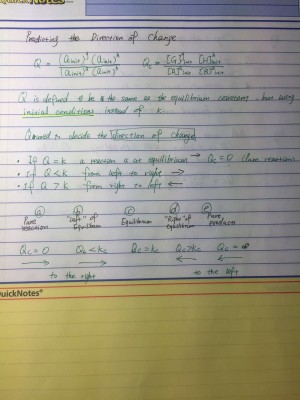 QuickNotes
Predicting the Direction of Change
Q = (a init) (a init) / (a init) (a init) Qc = [G] init [H] init / [A] init [B] init
Q is defined to be the same as the equilibrium constant, but using
initial conditions instead of k.
Q need to decide the direction of change
• If Q = K a reaction is at equilibrium → Qc = 0 (
• If Q < K from left to right →
• If Q > K from right to left ←
a b c d e
Pure "left" of Equilibrium "Right" of Pure
Equilibrium equilibrium products
Qc = 0 Qc < Kc Qc = Kc Qc > Kc Qc = ∞
→ → ← ←
to the right to the left
QuickNotes®